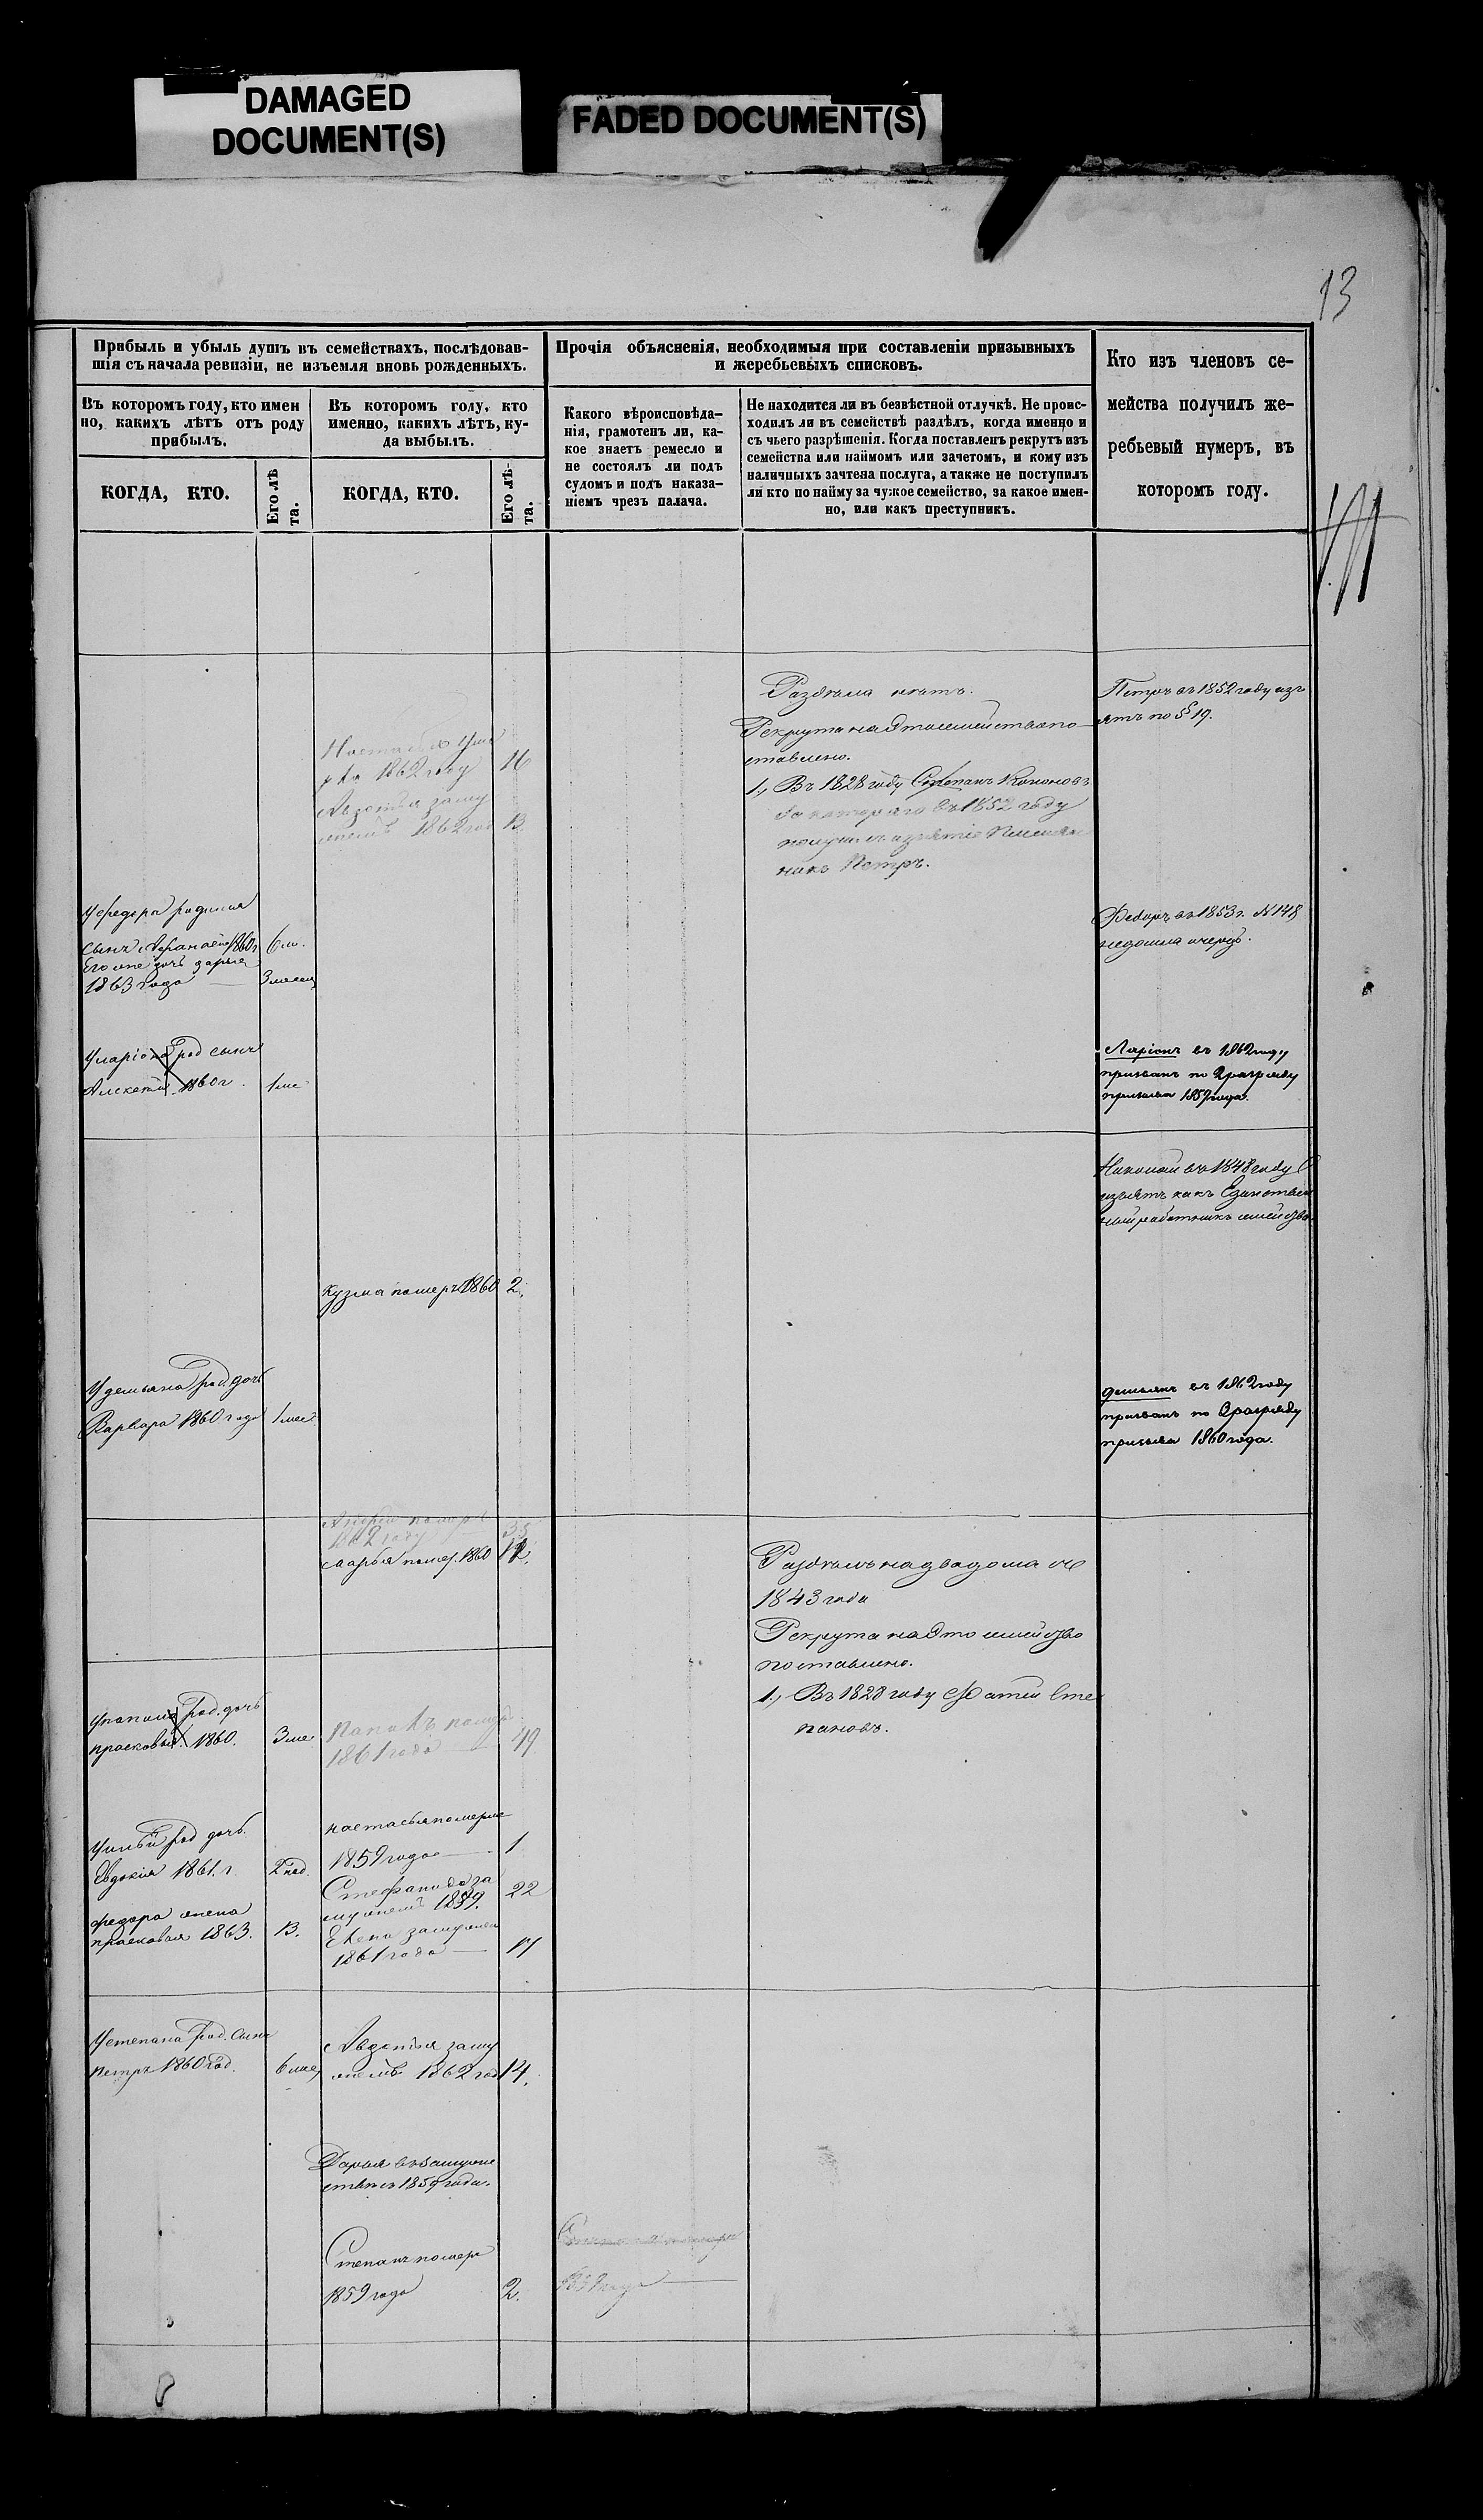 DAMAGED
DOCUMENT(S)
FADED DOCUMENT(S)
13
Прибыль и убыль душъ въ семействахъ, послѣдовав-
шія съ начала ревизіи, не изъемля вновь рожденныхъ.
Въ которомъ году, кто имен
но, какихъ лѣтъ отъ роду
прибылъ.
КОГДА, КТО.
Его лѣ
та.
Въ которомъ году, кто
именно, какихъ лѣтъ, ку-
да выбылъ.
КОГДА, КТО.
Его лѣ-
та.
Прочія объясненія, необходимыя при составленіи призывныхъ
и жеребьевыхъ списковъ.
Какого вѣроисповѣда-
нія, грамотенъ ли, ка-
кое знаетъ ремесло и
не состоялъ ли подъ
судомъ и подъ наказа-
ніемъ чрезъ палача.
Не находится ли въ безвѣстной отлучкѣ. Не проис-
ходилъ ли въ семействѣ раздѣлъ, когда именно и
съ чьего разрѣшенія. Когда поставленъ рекрутъ изъ
семейства или наймомъ или зачетомъ, и кому изъ
наличныхъ зачтена послуга, а также не поступилъ
ли кто по найму за чужое семейство, за какое имен-
но, или какъ преступникъ.
Кто изъ членовъ се-
мейства получилъ же-
ребьевый нумеръ, въ
которомъ году.
Раздѣла нѣтъ.
Рекрута на это семейство по
ставлено.
1., Въ 1828 году Степанъ Кононовъ
за котораго въ 1852 году
получилъ изъятіе племян
никъ Петръ.
Петръ въ 1852 году изъ
ятъ по § 19.
1862 году 16
Авдотья заму
жемъ 1862 год 13
У федора родился
сынъ Афанасій 1860 г. 6 м.
Его же дочь дарья
1863 года 3 месец
Федоръ въ 1853 г. № 148
недошла очередь.
У ларіона род сынъ
Алексей 1860 г. 1 ме
Ларіонъ въ 1862 году
призванъ по 2 разряду
призыва 1859 года.
Николай въ 1848 году
изъятъ какъ Единствен
ный работникъ семейства.
Кузма померъ 1860 2.
У демьяна род. дочь
Варвара 1860 года 1 мес.
демьянъ въ 1862 году
призванъ по разряду
призыва 1860 года.
1862 году
марья помер. 1860 12.
Раздѣлъ на два дома съ
1843 года
Рекрута на это семейство
поставлено.
1., Въ 1828 году Фатей Сте
пановъ.
род. дочь
прасковья 1860. 3 ме
1861 года 49
род дочь.
Евдокія 1861. г. 2 нед.
настасья померла
1859 года 1
Стефанида за
мужемъ 1859. 22
Елена замужем
1861 года 17
федора жена
прасковья 1863. 13.
У степана род. сынъ
петръ 1860 год. 6 мес
Авдотья заму
жемъ 1862 год 14.
Дарья въ замуже
ствѣ съ 1859 года.
Степанъ померъ
1859 года 2.
1859 года